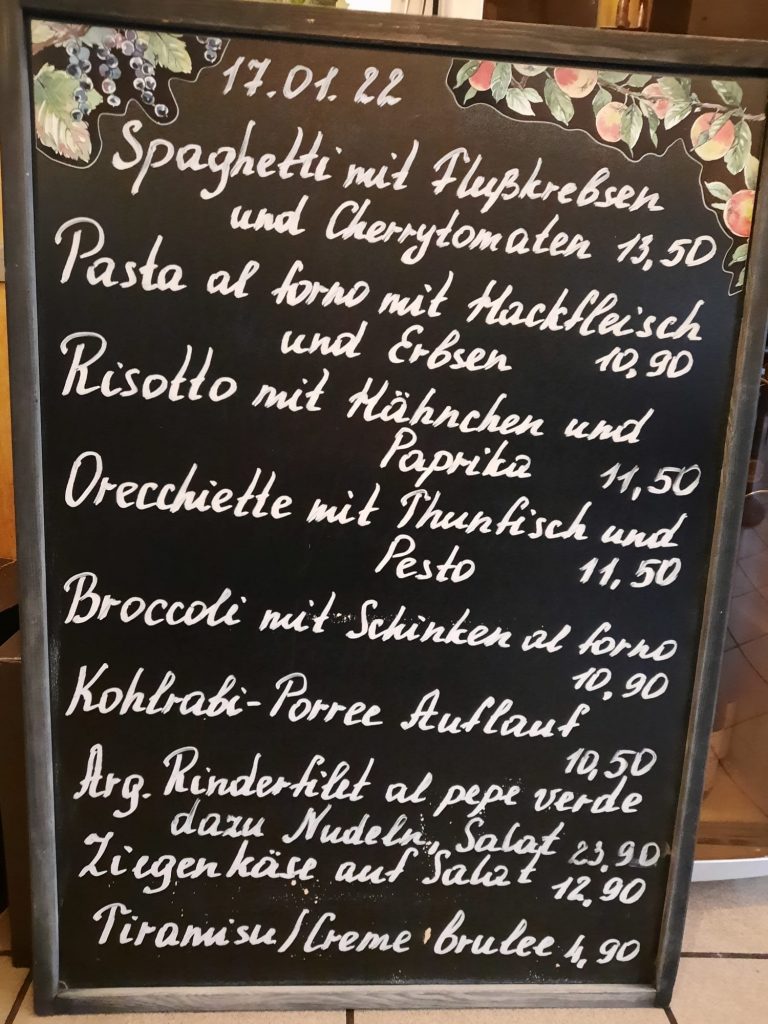 17.01.22
Spaghetti mit Flußkrebsen
und Cherrytomaten 13,50
Pasta al forno mit Hackfleisch
und Erbsen 10,90
Risotto mit Hähnchen und
Paprika 11,50
Orecchiette mit Thunfisch und
Pesto 11,50
Broccoli mit Schinken al forno
10,90
Kohlrabi-Porree Auflauf
10,50
Arg. Rinderfilet al pepe verde
dazu Nudeln, Salat 23,90
Ziegenkäse auf Salat 12,90
Tiramisu/Creme brulee 4,90